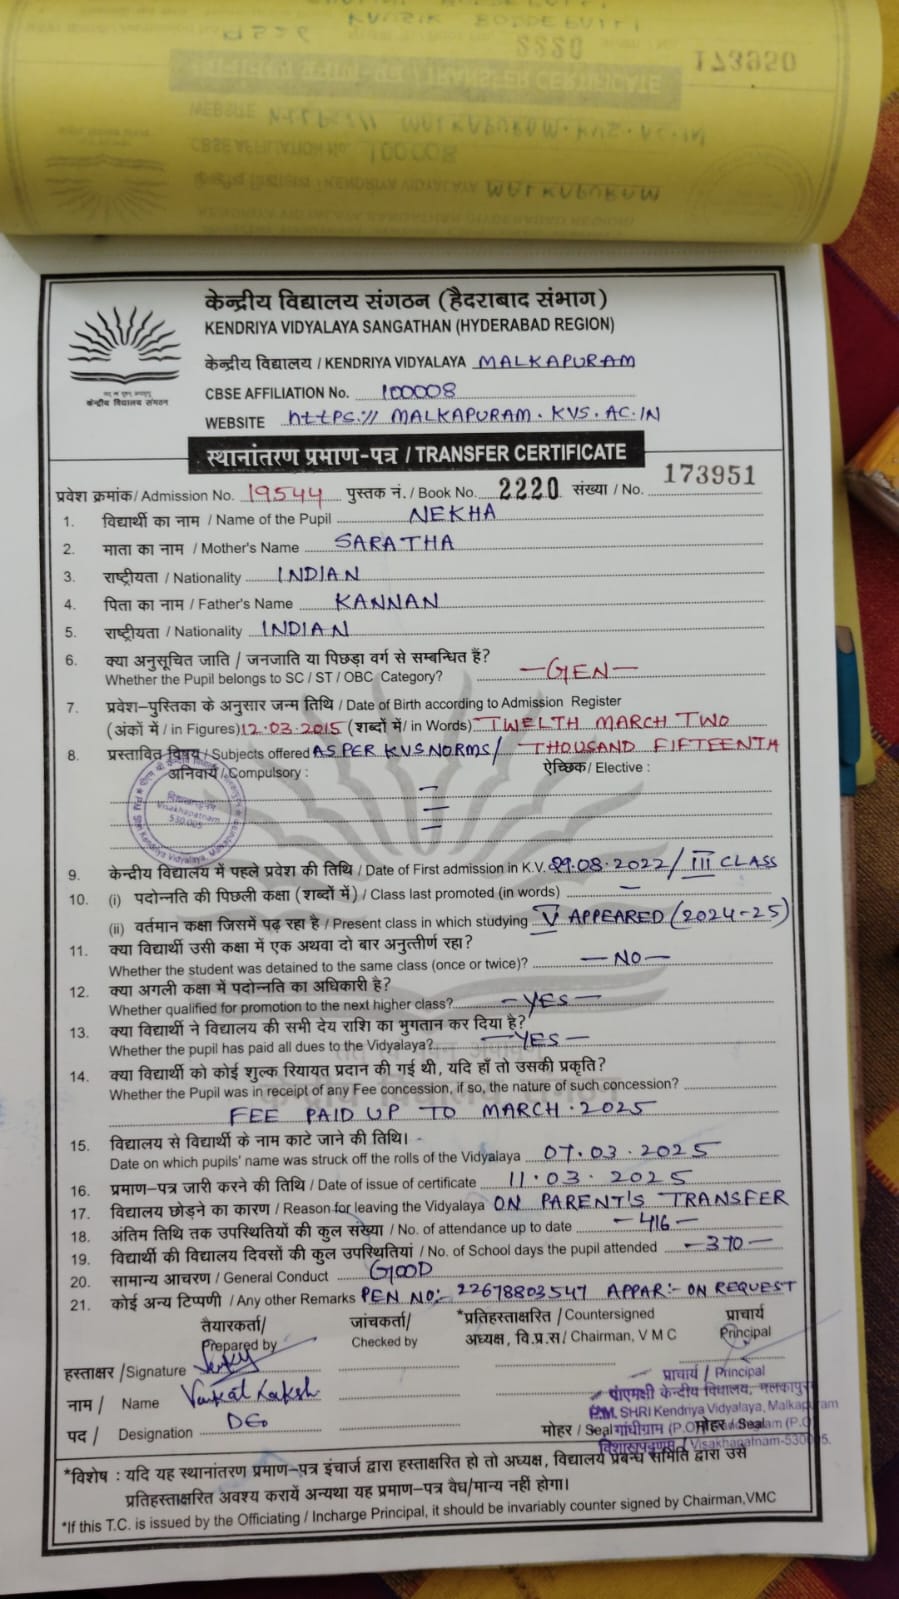 173950
केन्द्रीय विद्यालय संगठन (हैदराबाद संभाग)
KENDRIYA VIDYALAYA SANGATHAN (HYDERABAD REGION)
केन्द्रीय विद्यालय / KENDRIYA VIDYALAYA MALKAPURAM
CBSE AFFILIATION No. 100008
WEBSITE https:// MALKAPURAM. KVS. AC. IN
केन्द्रीय विद्यालय संगठन
स्थानांतरण प्रमाण-पत्र / TRANSFER CERTIFICATE
प्रवेश क्रमांक/ Admission No. 19544 पुस्तक नं. / Book No. 2220 संख्या / No. 173951
1. विद्यार्थी का नाम / Name of the Pupil NEKHA
2. माता का नाम / Mother's Name SARATHA
3. राष्ट्रीयता / Nationality INDIAN
4. पिता का नाम / Father's Name KANNAN
5. राष्ट्रीयता / Nationality INDIAN
6. क्या अनुसूचित जाति / जनजाति या पिछड़ा वर्ग से सम्बन्धित हैं?
Whether the Pupil belongs to SC / ST / OBC Category? —GEN—
7. प्रवेश-पुस्तिका के अनुसार जन्म तिथि / Date of Birth according to Admission Register
(अंकों में / in Figures) 12.03.2015 (शब्दों में/ in Words) TWELTH MARCH TWO
8. प्रस्तावित विषय / Subjects offered AS PER KVS NORMS/ THOUSAND FIFTEENTH
अनिवार्य / Compulsory : ऐच्छिक/ Elective :
Visakhapatnam
530005
9. केन्द्रीय विद्यालय में पहले प्रवेश की तिथि / Date of First admission in K.V. 29.08.2022/ III CLASS
10. (i) पदोन्नति की पिछली कक्षा (शब्दों में) / Class last promoted (in words) —
(ii) वर्तमान कक्षा जिसमें पढ़ रहा है / Present class in which studying V APPEARED (2024-25)
11. क्या विद्यार्थी उसी कक्षा में एक अथवा दो बार अनुत्तीर्ण रहा?
Whether the student was detained to the same class (once or twice)? —NO—
12. क्या अगली कक्षा में पदोन्नति का अधिकारी है?
Whether qualified for promotion to the next higher class? —YES—
13. क्या विद्यार्थी ने विद्यालय की सभी देय राशि का भुगतान कर दिया है?
Whether the pupil has paid all dues to the Vidyalaya? —YES—
14. क्या विद्यार्थी को कोई शुल्क रियायत प्रदान की गई थी, यदि हाँ तो उसकी प्रकृति?
Whether the Pupil was in receipt of any Fee concession, if so, the nature of such concession?
FEE PAID UP TO MARCH.2025
15. विद्यालय से विद्यार्थी के नाम काटे जाने की तिथि।
Date on which pupils' name was struck off the rolls of the Vidyalaya 07.03.2025
16. प्रमाण-पत्र जारी करने की तिथि / Date of issue of certificate 11.03.2025
17. विद्यालय छोड़ने का कारण / Reason for leaving the Vidyalaya ON PARENT'S TRANSFER
18. अंतिम तिथि तक उपस्थितियों की कुल संख्या / No. of attendance up to date —416—
19. विद्यार्थी की विद्यालय दिवसों की कुल उपस्थितियां / No. of School days the pupil attended —370—
20. सामान्य आचरण / General Conduct GOOD
21. कोई अन्य टिप्पणी / Any other Remarks PEN NO:- 22678803547 APPAR:- ON REQUEST
तैयारकर्ता/ जांचकर्ता/ *प्रतिहस्ताक्षरित / Countersigned प्राचार्य
Prepared by Checked by अध्यक्ष, वि.प्र.स/ Chairman, V M C Principal
हस्ताक्षर /Signature
प्राचार्य / Principal
नाम / Name
पीएमश्री केन्द्रीय विद्यालय, मलकापु
P.M. SHRI Kendriya Vidyalaya, Malkapuram
पद / Designation DEO मोहर / Seal मोहर / Seal
विशाखपट्टणम / Visakhapatnam-530005.
*विशेष : यदि यह स्थानांतरण प्रमाण-पत्र इंचार्ज द्वारा हस्ताक्षरित हो तो अध्यक्ष, विद्यालय प्रबन्ध समिति द्वारा उसे
प्रतिहस्ताक्षरित अवश्य करायें अन्यथा यह प्रमाण-पत्र वैध/मान्य नहीं होगा।
*If this T.C. is issued by the Officiating / Incharge Principal, it should be invariably counter signed by Chairman,VMC